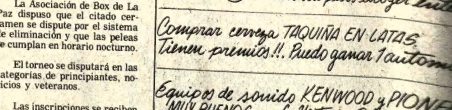 La Asociación de Box de La
Paz dispuso que el citado cer-
tamen se dispute por el sistema
de eliminación y que las peleas
se cumplan en horario nocturno.
El torneo se disputará en las
categorías de principiantes, no-
vicios y veteranos.
Las inscripciones se reciben
Comprar cerveza TAQUIÑA EN LATAS,
tienen premios!!. Puedo ganar 1 autom
Equipos de sonido KENWOOD y PIONE
MUY BUENOS